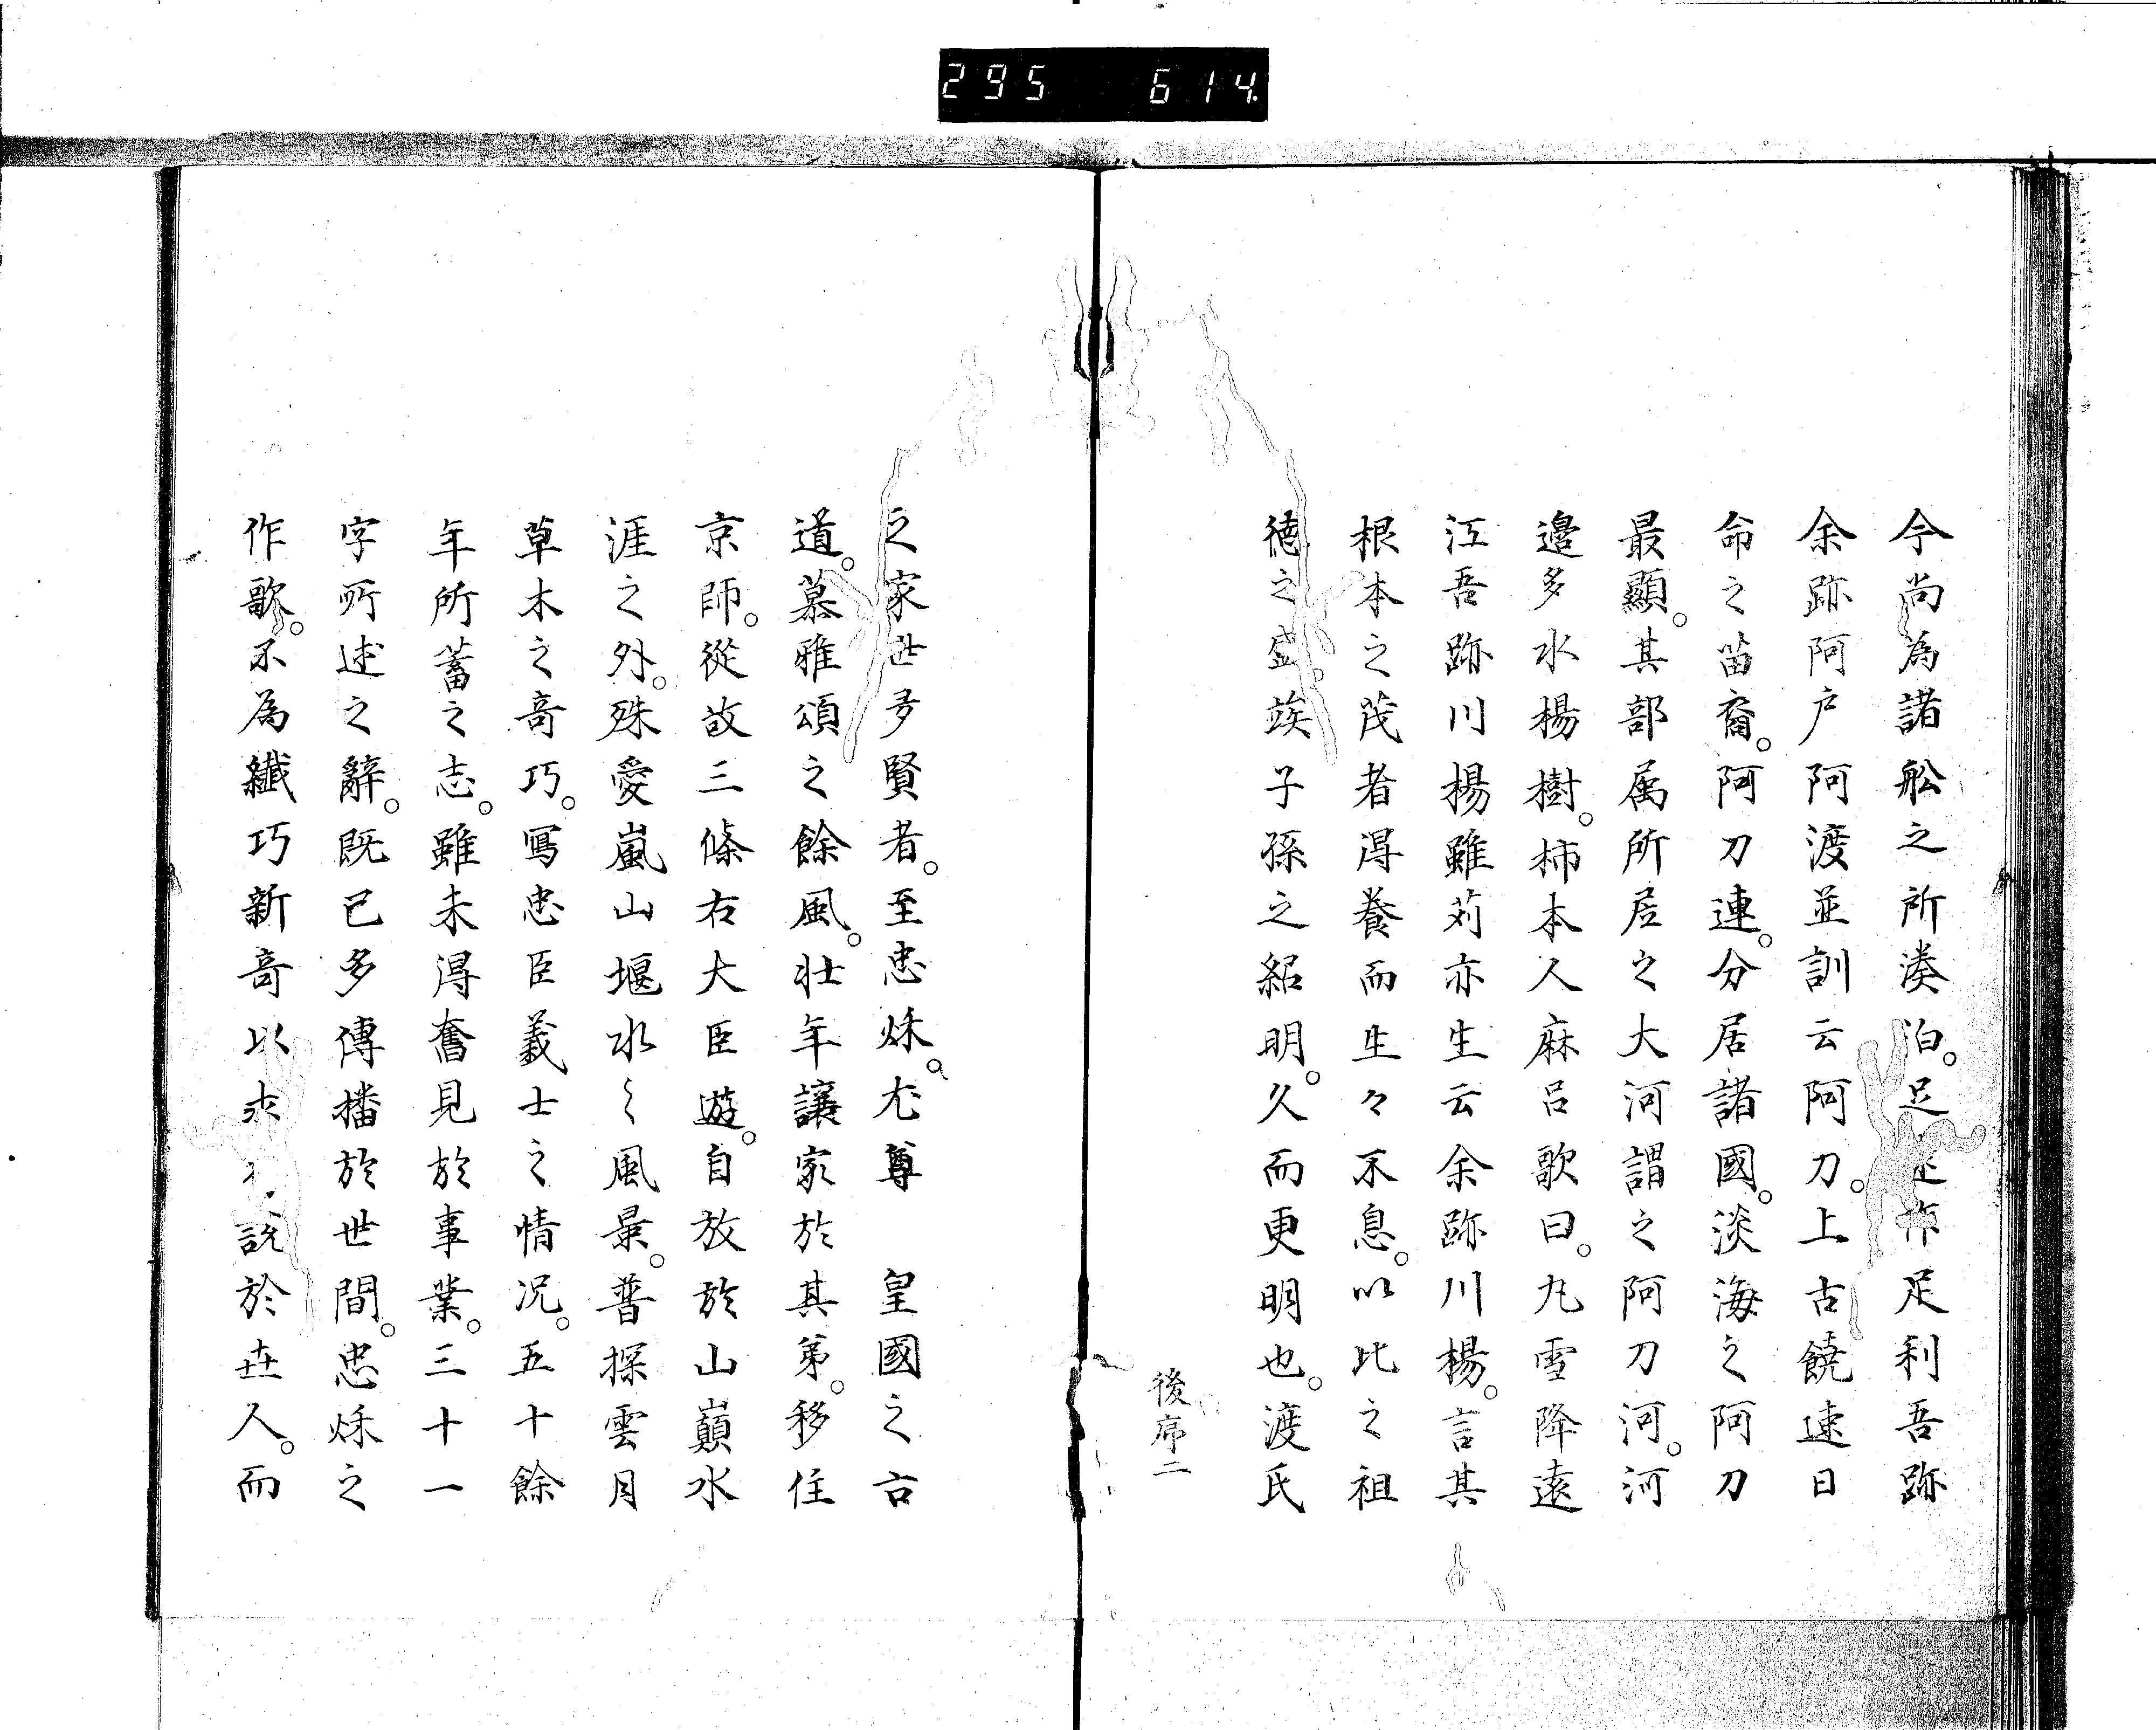 295 614
今尚為諸舩之所湊泊。足作足利吾跡
余跡阿戸阿渡並訓云阿刀。上古饒速日
命之苗裔。阿刀連。分居諸國。淡海之阿刀
最顯。其部属所居之大河謂之阿刀河。河
邉多水楊樹。柿本人麻呂歌曰。丸雪降遠
江吾跡川楊雖苅亦生云余跡川楊。言其
根本之茂者得養而生々不息。以此之祖
徳之盛。竢子孫之紹明。久而更明也。渡氏
後序二
之家世多賢者。至忠秌。尤尊　皇國之古
道。慕雅頌之餘風。壮年讓家於其第。移住
京師。從故三條右大臣遊。自放於山巓水
涯之外。殊愛嵐山堰水〻風景。普探雲月
草木之奇巧。寫忠臣義士之情况。五十餘
年所蓄之志。雖未得奮見於事業。三十一
字所述之辭。既已多傳播於世間。忠秌之
作歌。不為纖巧新奇以求説於卋人。而